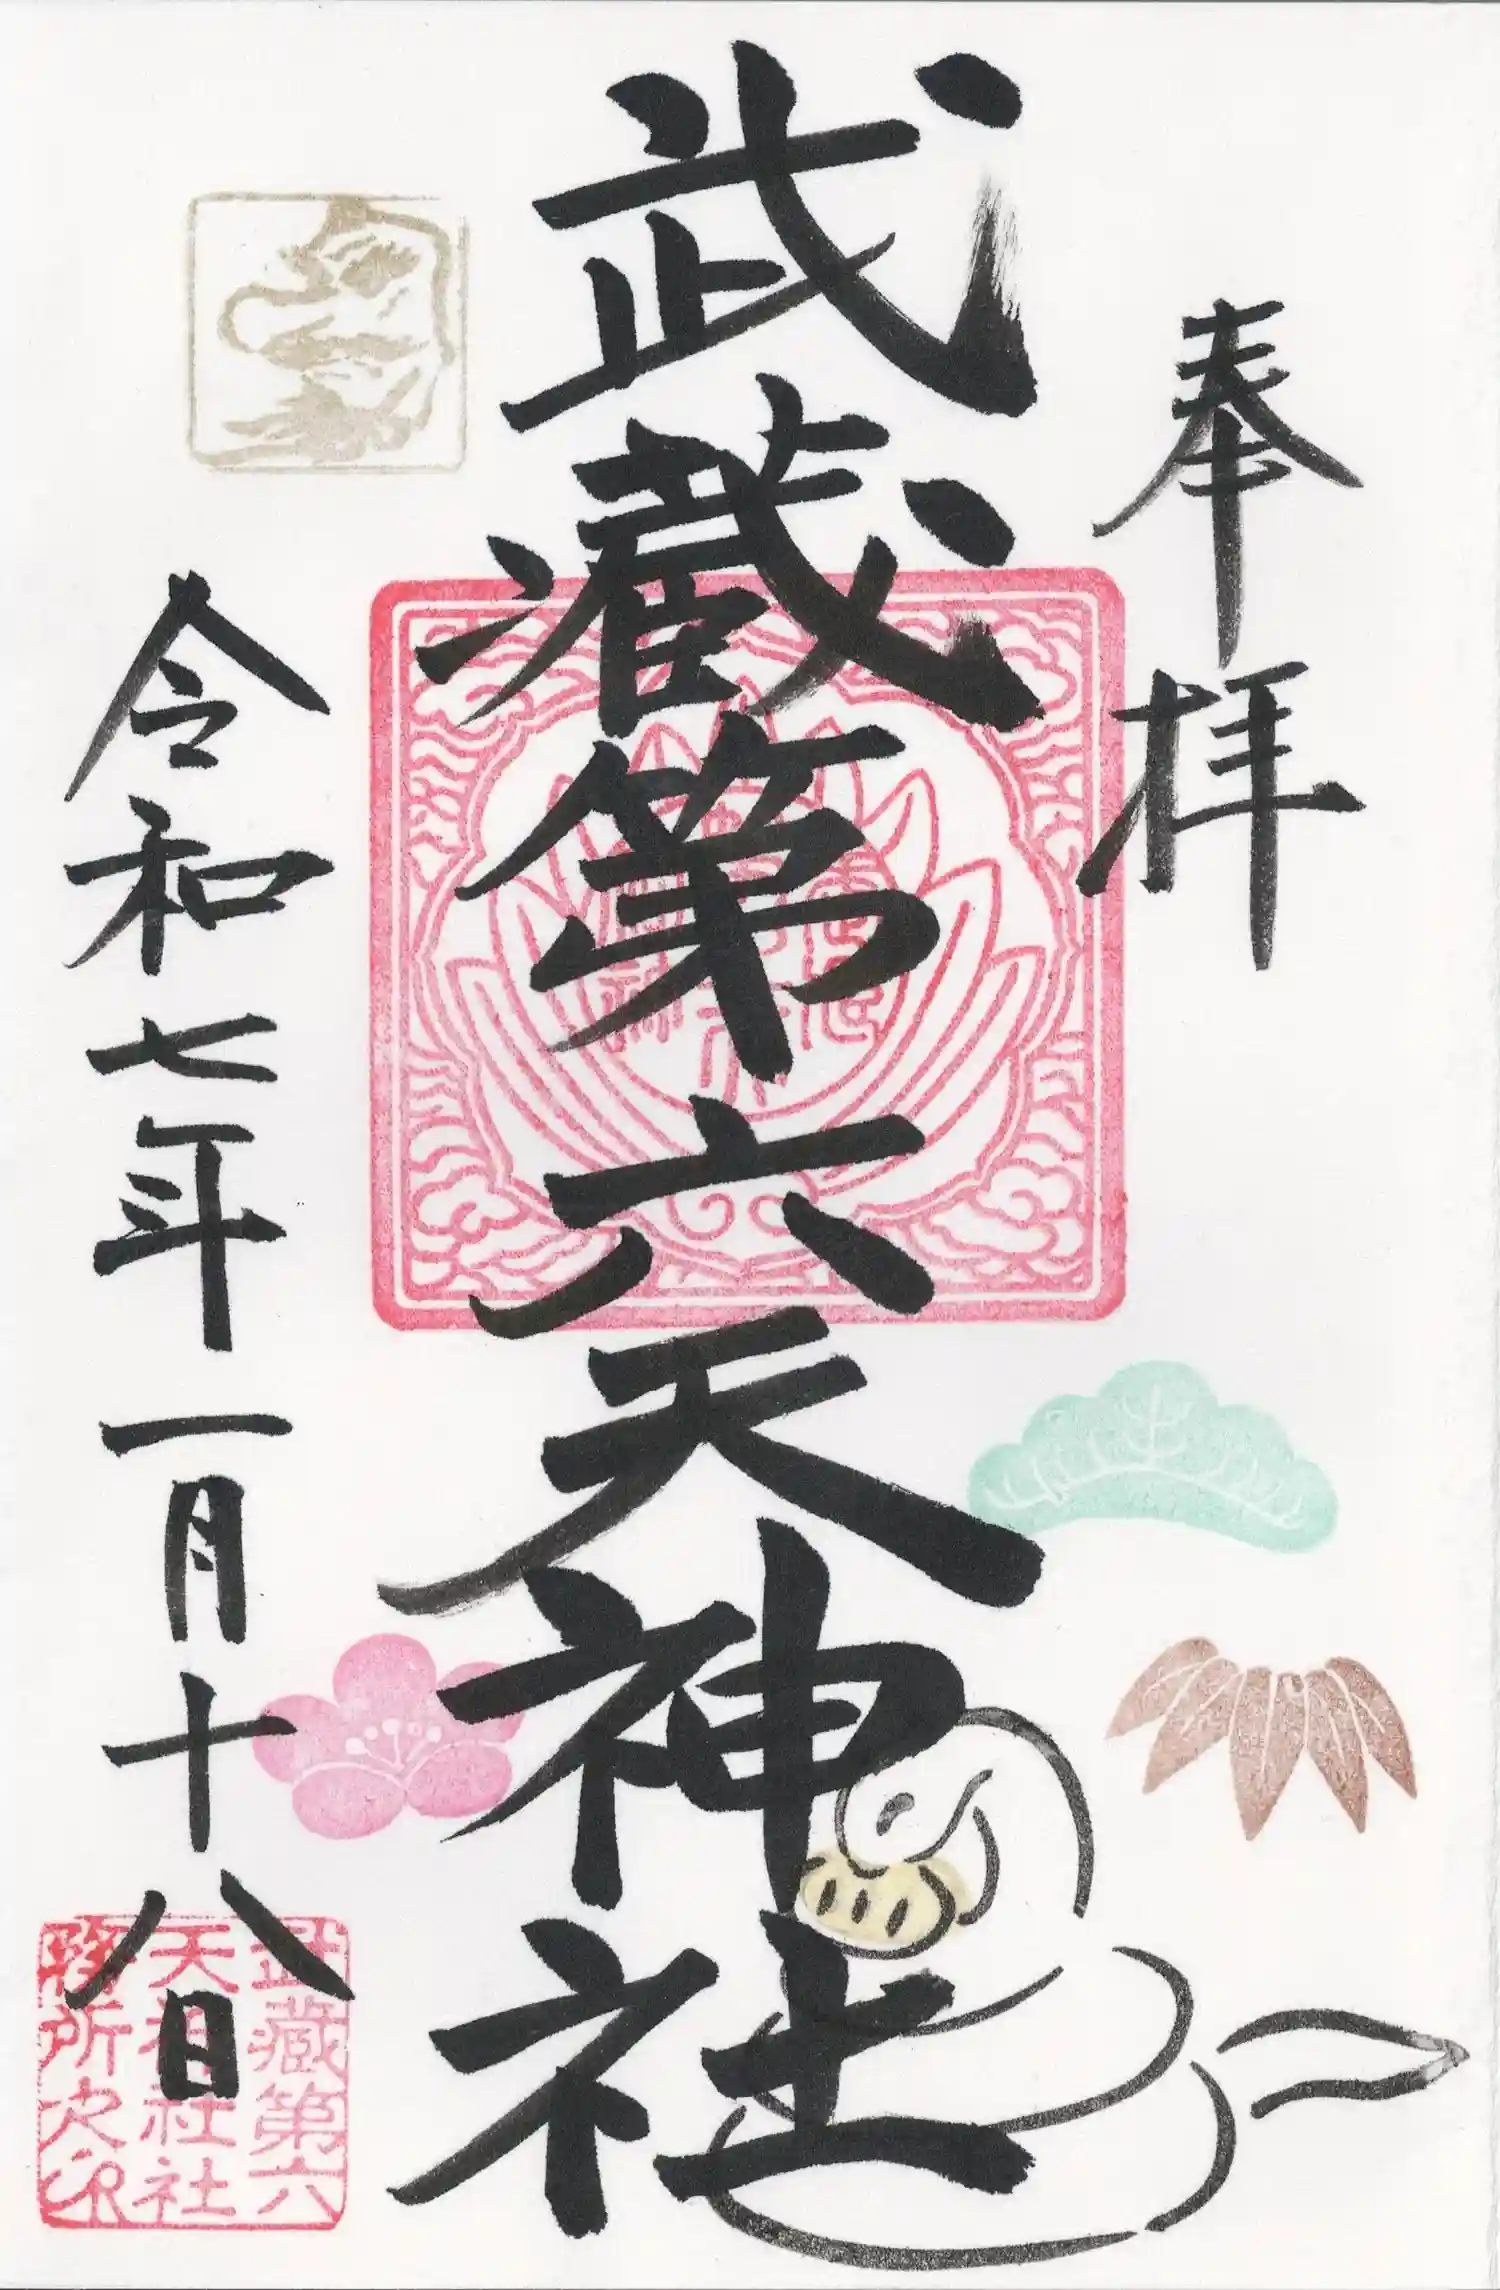 奉拝
武蔵第六天神社
令和七年一月十八日
武蔵第六
天神社社
務所之印